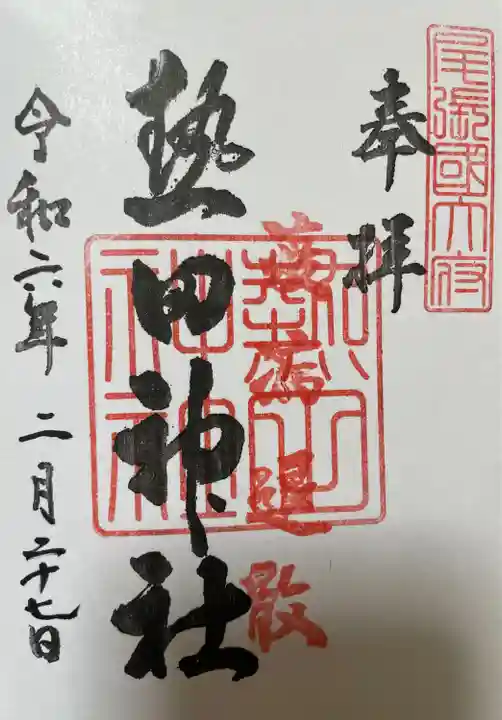 尾張國大府
奉拝
退散
熱田神社
熱田
神社
令和六年 二月二十七日